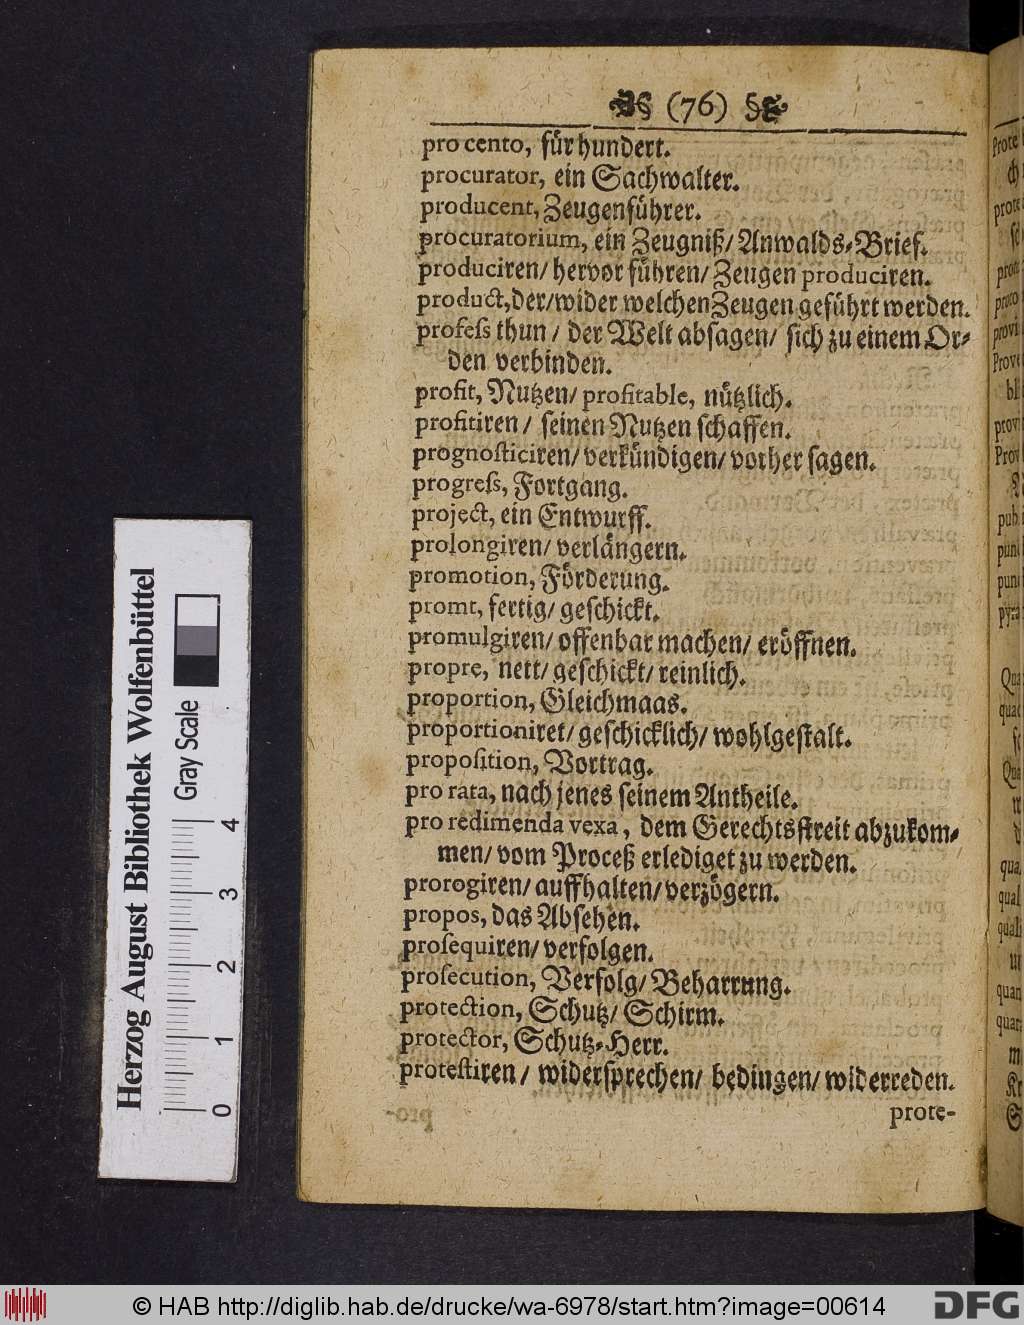 (76)
pro cento, für hundert.
procurator, ein Sachwalter.
producent, Zeugenführer.
procuratorium, ein Zeugniß/ Anwalds-Brief.
produciren/ hervor führen/ Zeugen produciren.
product, der/ wider welchen Zeugen geführt werden.
profeſs thun / der Welt abſagen/ ſich zu einem Or-
den verbinden.
profit, Nutzen/ profitable, nützlich.
profitiren / ſeinen Nutzen ſchaffen.
prognoſticiren/ verkündigen/ vorher ſagen.
progreſs, Fortgang.
project, ein Entwurff.
prolongiren/ verlängern.
promotion, Förderung.
promt, fertig/ geſchickt.
promulgiren/ offenbar machen/ eröffnen.
propre, nett/ geſchickt/ reinlich.
proportion, Gleichmaas.
proportioniret/ geſchicklich/ wohlgeſtalt.
propoſition, Vortrag.
pro rata, nach jenes ſeinem Antheile.
pro redimenda vexa, dem Gerechtsſtreit abzukom-
men/ vom Proceß erlediget zu werden.
prorogiren/ auffhalten/ verzögern.
propos, das Abſehen.
proſequiren/ verfolgen.
proſecution, Verfolg/ Beharrung.
protection, Schutz/ Schirm.
protector, Schutz-Herr.
proteſtiren / widerſprechen/ bedingen/ widerreden.
prote-
Herzog August Bibliothek Wolfenbüttel
Gray Scale
0 1 2 3 4
© HAB http://diglib.hab.de/drucke/wa-6978/start.htm?image=00614
DFG